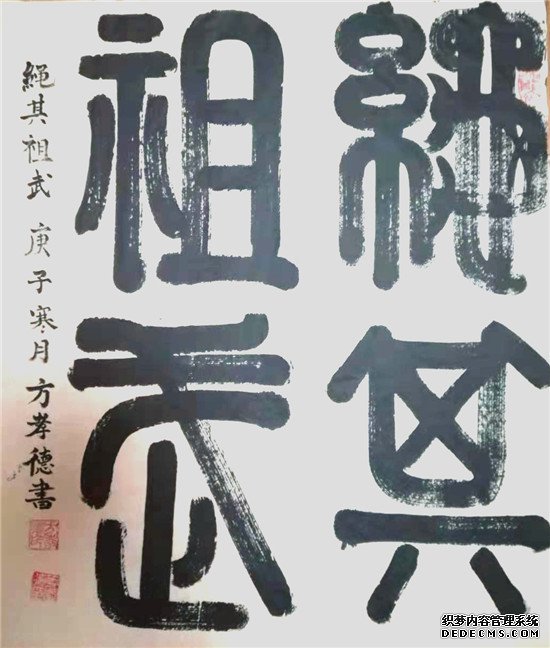 繩其
祖武
繩其祖武 庚子寒月方孝德書
织梦内容管理系统
DEDECMS.COM